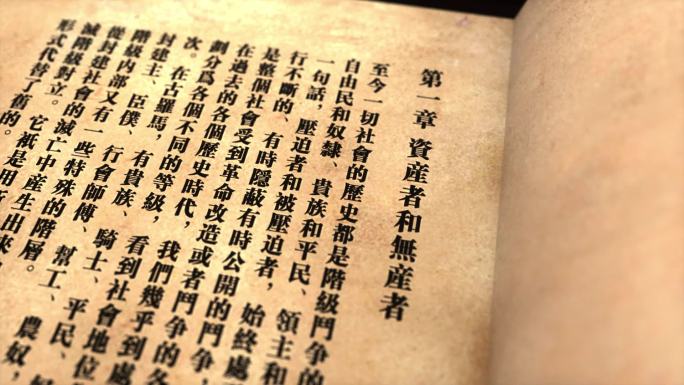 第一章 資產者和無產者
至今一切社會的歷史都是階級鬥争的
自由民和奴隸、貴族和平民、領主和
一句話，壓迫者和被壓迫者，始終處
行不斷的、有時隱蔽有時公開的鬥争，
是整個社會受到革命改造或者鬥争的各
在過去的各個歷史時代，我們幾乎到處
劃分爲各個不同的等級，看到社會地位
次。在古羅馬，有貴族、騎士、平民、
封建主、臣僕、行會師傅、幫工、農奴，
階級内部又有一些特殊的階層。
從封建社會的滅亡中産生出來
滅階級對立。它衹是用
形式代替了舊的。